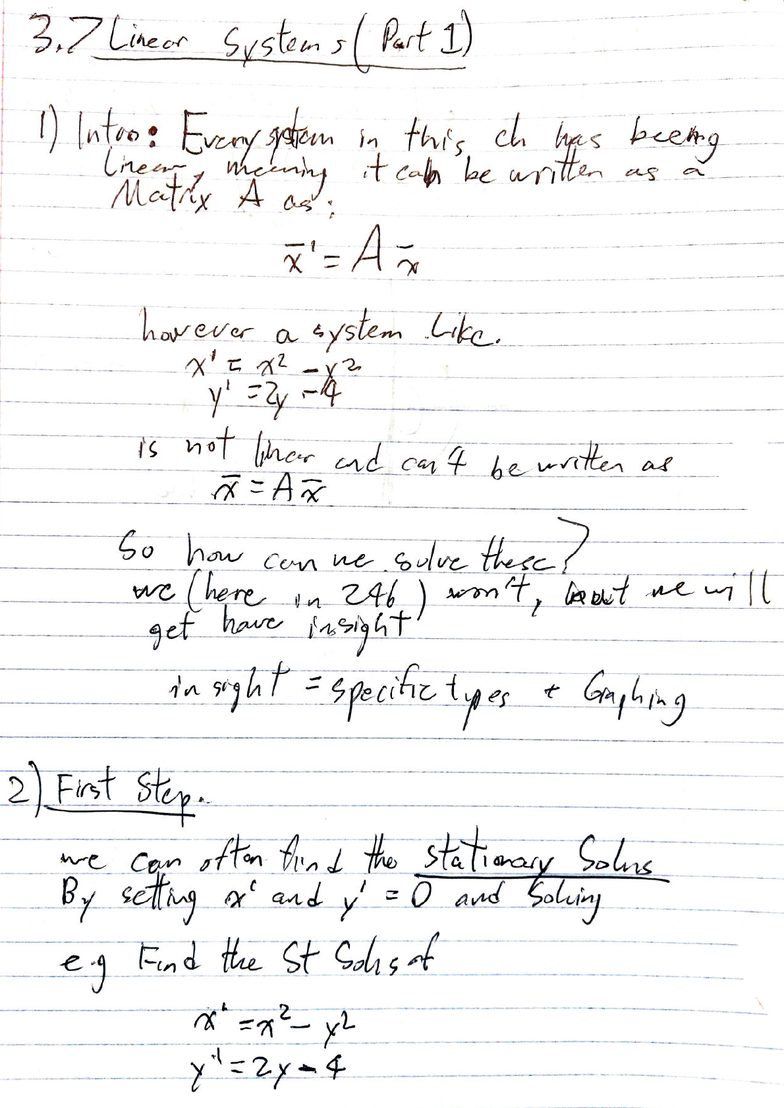 3.7 Linear Systems (Part 1)
1) Intro: Every system in this ch has been
linear, meaning it can be written as a
Matrix A as:
x̄' = A x̄
however a system like.
x' = x² - y²
y' = 2y - 4
is not linear and can't be written as
x̄ = A x̄
So how can we solve these?
we (here in 246) won't, but we will
get have insight
insight = specific types + Graphing
2) First Step.
we can often find the stationary Solns
By setting x' and y' = 0 and Solving
e.g Find the St Solns of
x' = x² - y²
y' = 2y - 4